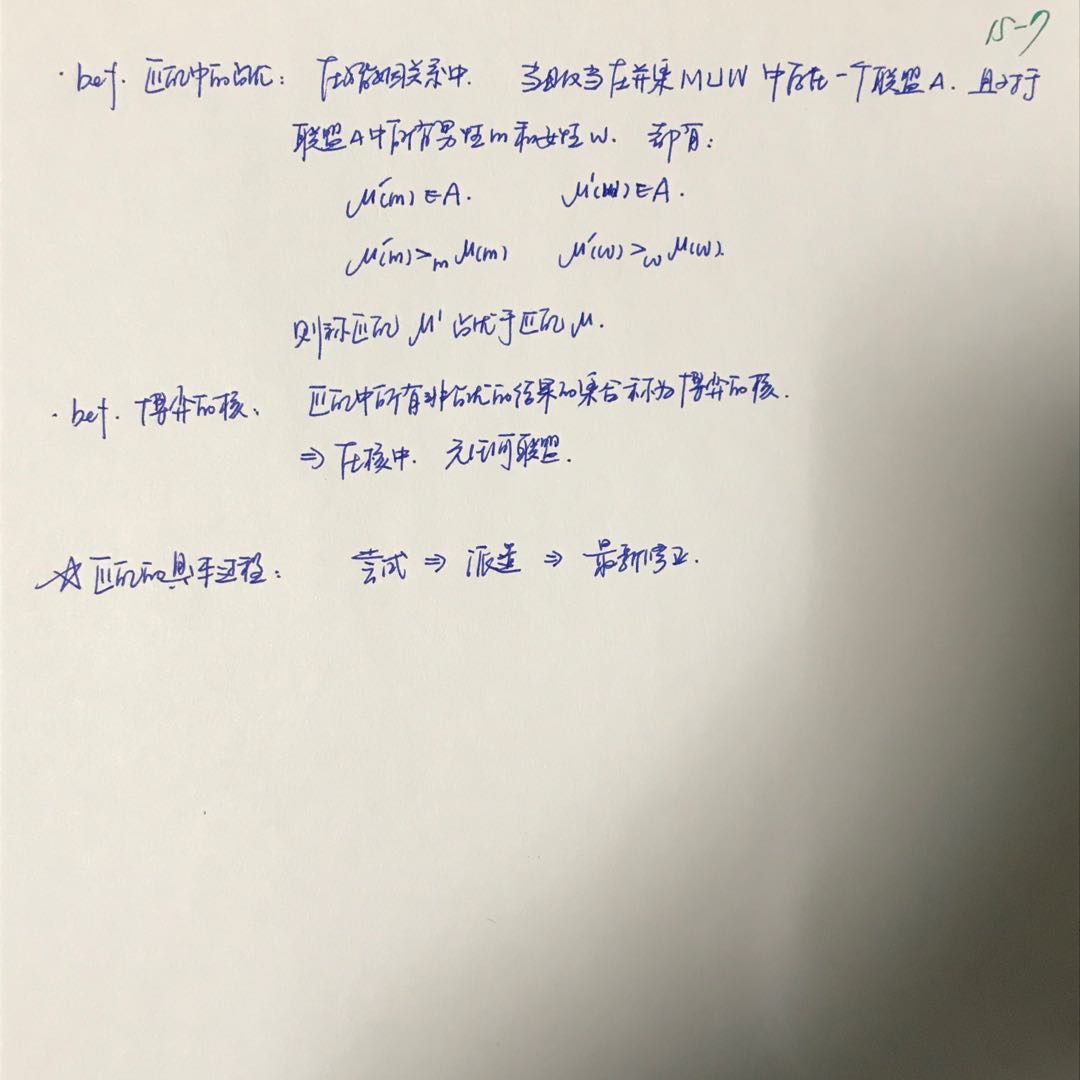 15-7
· Def. 匹配中的占优: 在婚姻关系中. 当且仅当在并集 M∪W 中存在一个联盟 A. 且对于
联盟 A 中所有男性 m 和女性 w. 都有:
μ'(m)∈A. μ'(w)∈A.
μ'(m)>ₘ μ(m) μ'(w)>_w μ(w).
则称匹配 μ' 占优于匹配 μ.
· Def. 博弈的核. 匹配中所有非占优的结果的集合称为博弈的核.
⇒ 在核中. 无任何联盟.
☆匹配的具体过程: 尝试 ⇒ ⇒ 最新修正.